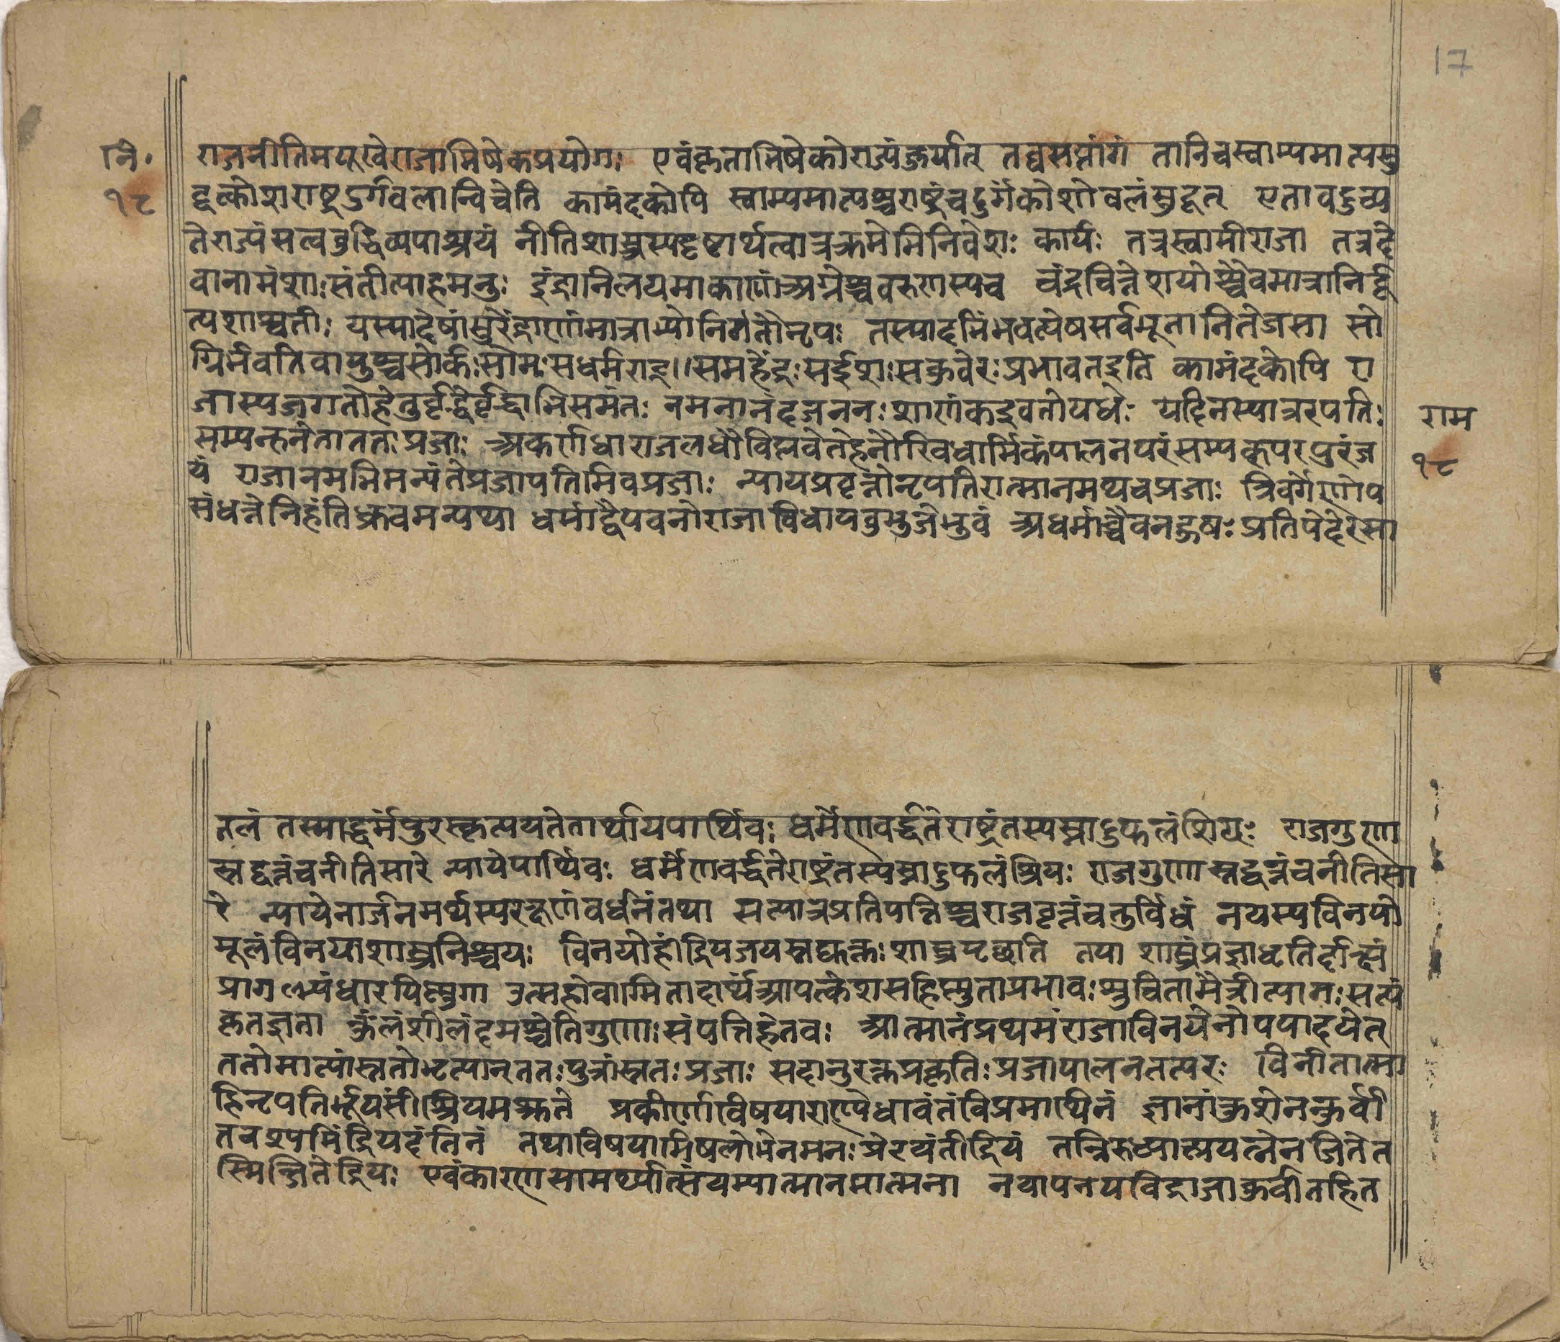 17
रानी॰ राजनीतिमयूखेराजाभिषेकप्रयोगः एवंकृताभिषेकोराज्यंकुर्यात् तच्चसप्तांगं तानिचस्वाम्यमात्यसु
१८ हृत्कोशराष्ट्रदुर्गबलानिचेति कामंदकोपि स्वाम्यमात्यश्चराष्ट्रंचदुर्गंकोशोबलंसुहृत् एतावदुच्य
तेराज्यंसत्वबुद्धिव्यपाश्रयं नीतिशास्त्रस्यदृष्टार्थत्वान्नक्रमेभिनिवेशः कार्यः तत्रस्वामीराजा तत्रदे
वानामंशाःसंतीत्याहमनुः इंद्रानिलयमार्काणांअग्नेश्चवरुणस्यच चंद्रवित्तेशयोश्चैवमात्रानिर्हृ
त्यशाश्वतीः यस्मादेषांसुरेंद्राणांमात्राभ्योनिर्गतोनृपः तस्मादभिभवत्येषसर्वभूतानितेजसा सो
ग्निर्भवतिवायुश्चसोर्कःसोमःसधर्मराट्॥समहेंद्रःसईशःसकुबेरःप्रभावतइति कामंदकोपि रा
जास्यजगतोहेतुर्वृद्धेर्वृद्धाभिसमतः नयनानंदजननःशशांकइवतोयधेः यदिनस्यान्नरपतिः
राम
सम्यङ्नेताततःप्रजाः अकर्णधाराजलधौविप्लवेतेहनौरिवधार्मिकंपालनपरंसम्यक्परपुरंज
१८
यं राजानमभिमन्यंतेप्रजापतिमिवप्रजाः न्यायप्रवृत्तोनृपतिरात्मानमथचप्रजाः त्रिवर्गेणोप
संधत्तेनिहंतिध्रुवमन्यथा धर्माद्वैपवनोराजाविधायबुभुजेभुवं अधर्माच्चैवनहुषःप्रतिपेदेरसा
तलं तस्माद्धर्मंपुरस्कृत्ययतेतार्थायपार्थिवः धर्मेणवर्द्धतेराष्ट्रंतस्यस्वादुफलंश्रियः राजगुणा
स्तद्वत्तंचनीतिसारे न्यायेपार्थिवः धर्मेणवर्द्धतेराष्ट्रंतस्यस्वादुफलंश्रियः राजगुणास्तद्वत्तंचनीतिसा
रे न्यायेनार्जनमर्थस्यरक्षणंवर्धनंतथा सत्पात्रप्रतिपत्तिश्चराजवृत्तंचतुर्विधं नयस्यविनयो
मूलंविनयःशास्त्रनिश्चयः विनयोहींद्रियजयस्तद्युक्तःशास्त्रमृच्छति तथा शास्त्रंप्रज्ञाधृतिर्दाक्ष्यं
प्रागल्भ्यंधारयिष्णुता उत्साहोवाग्मितादार्ढ्यंआपत्क्लेशसहिष्णुताप्रभावःशुचितामैत्रीत्यागःसत्यं
कृतज्ञता कुलंशीलंदमश्चेतिगुणाःसंपत्तिहेतवः आत्मानंप्रथमंराजाविनयेनोपपादयेत्
ततोमात्यांस्ततोभृत्यान्ततःपुत्रांस्ततःप्रजाः सदानुरक्तप्रकृतिःप्रजापालनतत्परः विनीतात्मा
हिनृपतिर्भूयसींश्रियमश्नुते प्रकीर्णेविषयारण्येधावंतंविप्रमाथिनं ज्ञानांकुशेनकुर्वी
तवश्यमिंद्रियदंतिनं तथाविषयामिषलोभेनमनःप्रेरयतींद्रियं तन्निरुंध्यात्प्रयत्नेनजितेत
स्मिन्जितेंद्रियः एवंकारणसामर्थ्यात्संयम्यात्मानमात्मना नयापनयविद्राजाकुर्वीतहित